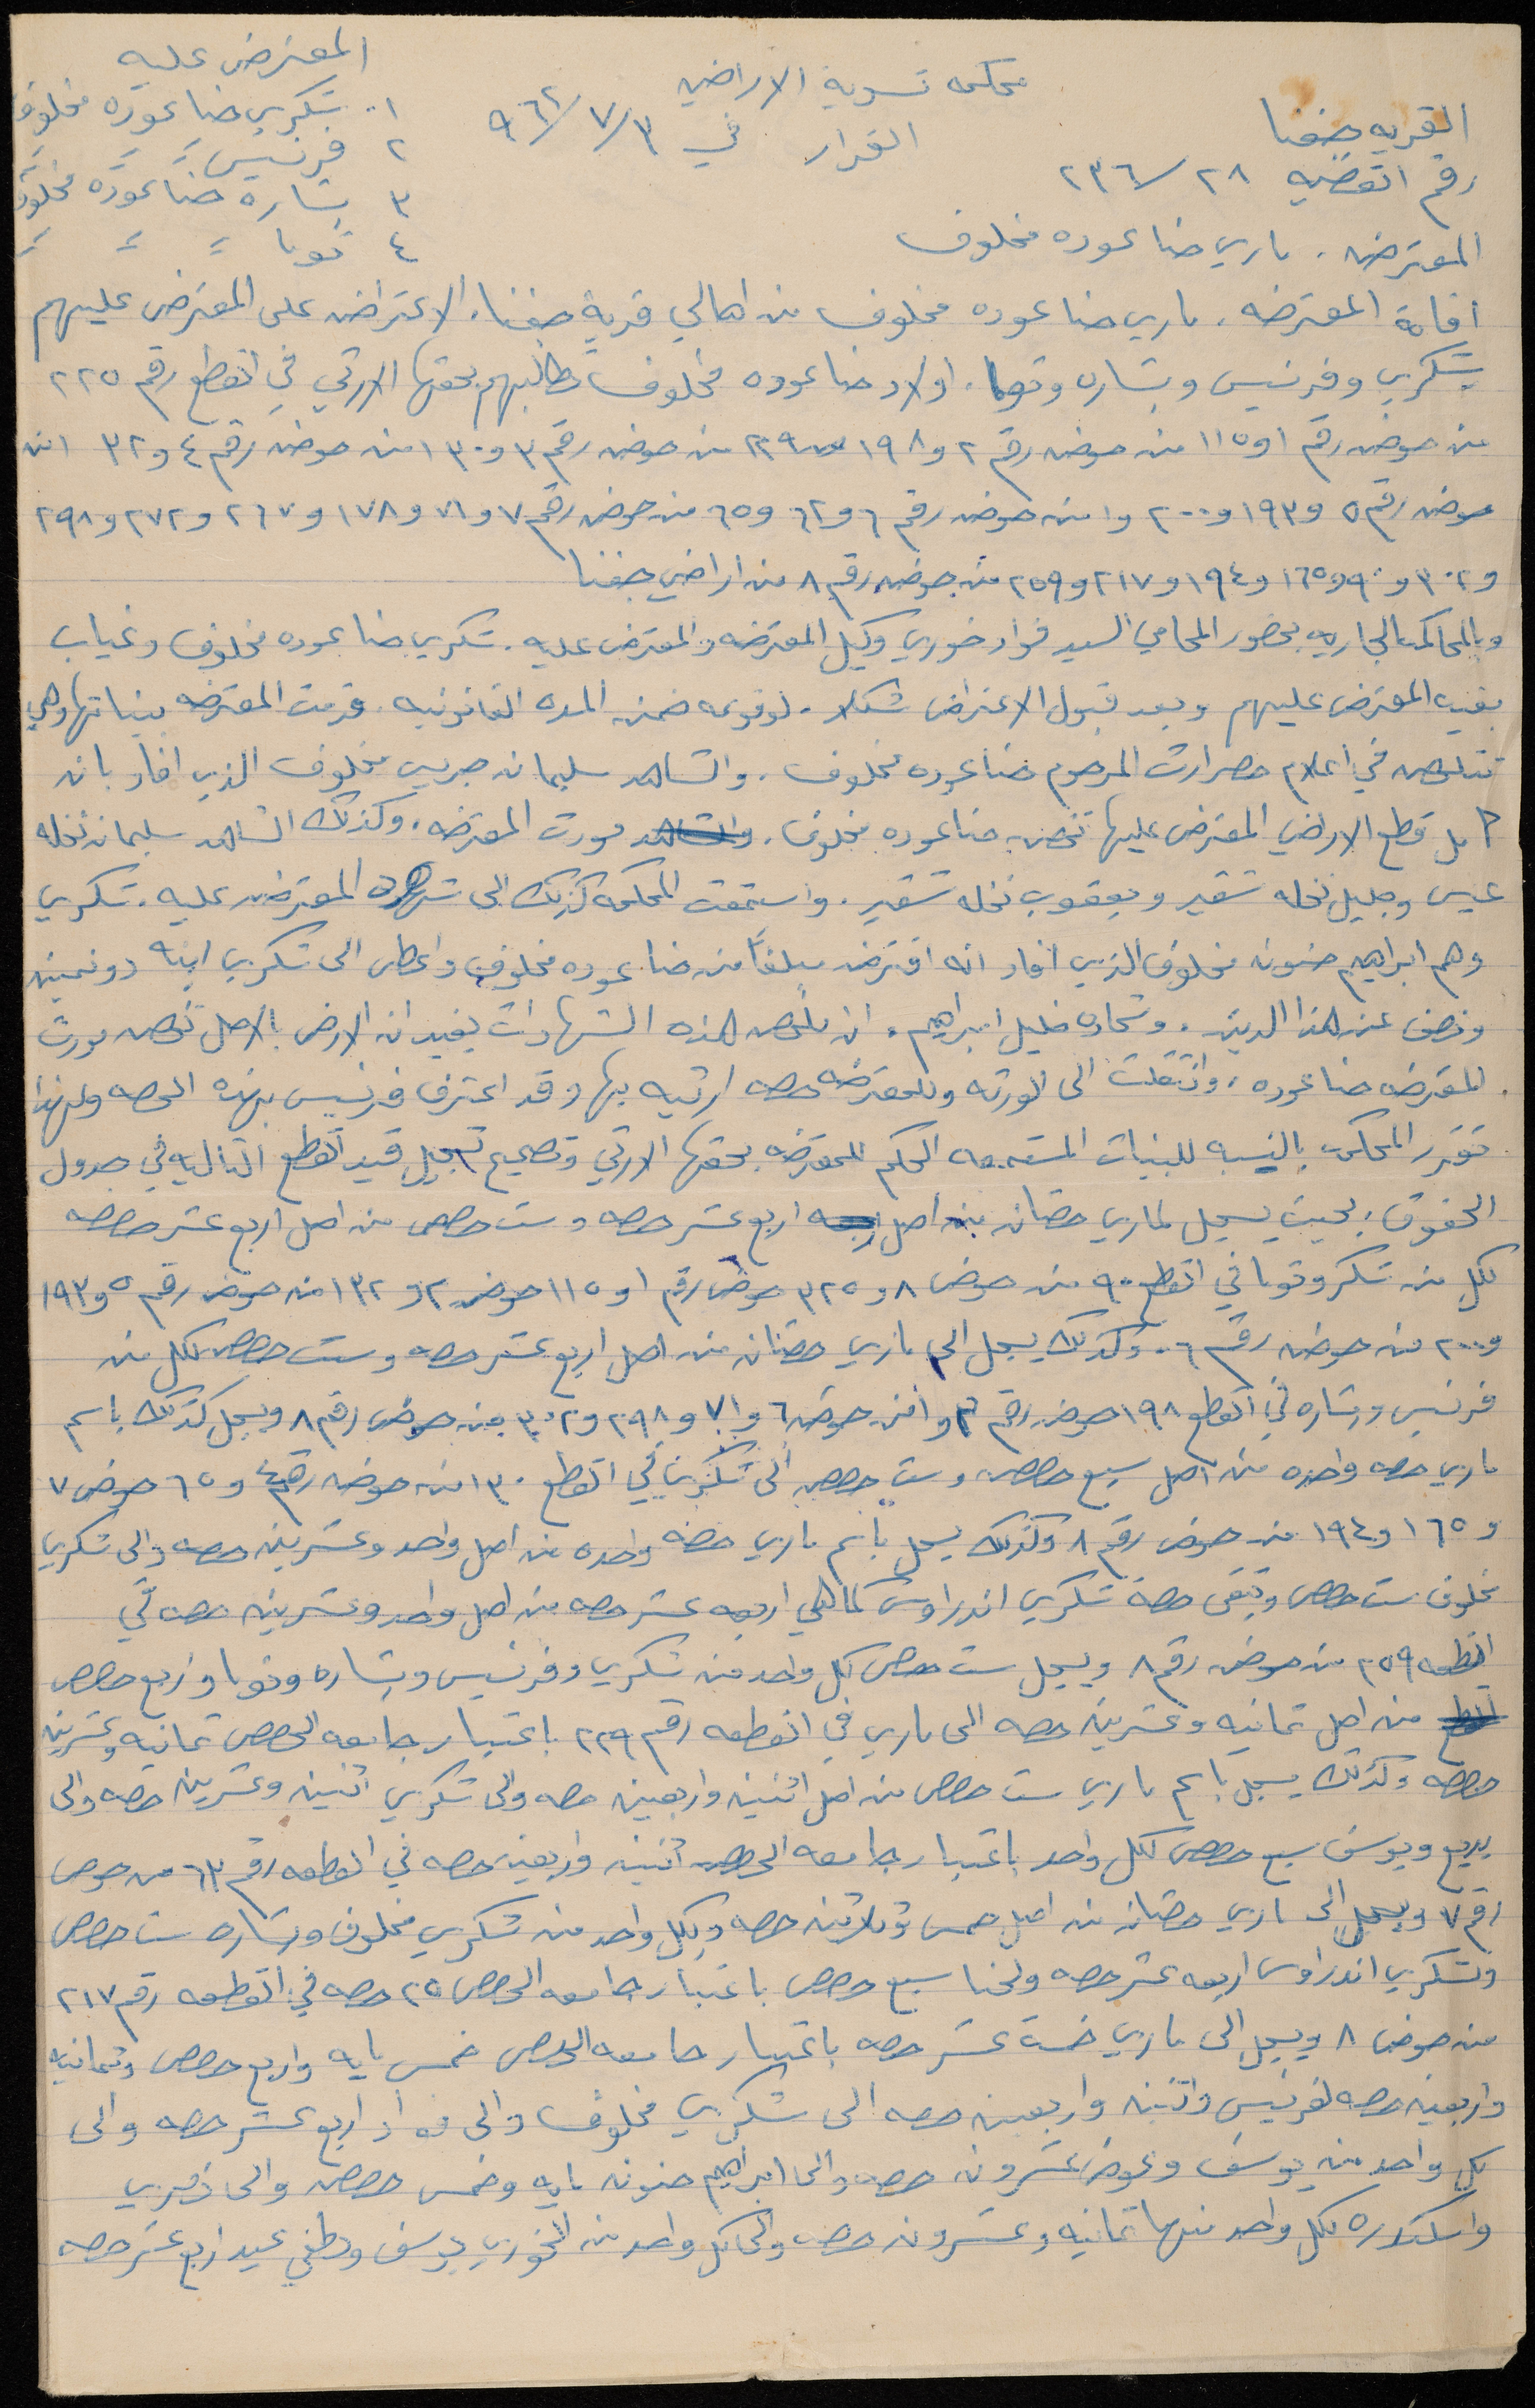 محكمه تسوية الاراضي
القرار في ٣/٧/٩٦٢
القريه جفنا
رقم القضيه ٢٨/٢٣٦
المعترضه . ماري حنا عوده مخلوف
المعترض عليه
١. شكري حنا عوده مخلوف
٢ فرنسيس = = =
٣ بشاره حنا عوده مخلوف
٤ توما = = =
اقامة المعترضه . ماري حنا عوده مخلوف من اهالي قرية جفنا . الاعتراض على المعترض عليهم
شكري وفرنسيس وبشاره وتوما . اولاد حنا عوده مخلوف تطالبهم بحقها الارثي في القطع رقم ٢٢٥
من حوض رقم ١ و ١١٥ من حوض رقم ٢ و ١٩٨ و ٢٢٩ من حوض رقم ٣ و ١٣٠ من حوض رقم ٤ و ١٣٢ من
حوض رقم ٥ و ١٩٣ و ٢٠٠ و ١ من حوض رقم ٦ و ٦٢ و ٦٥ من حوض رقم ٧ و ٧١ و ١٧٨ و ٢٦٧ و ٢٧٢ و ٢٩٨
و ٣٠٢ و ٩٠ و ١٦٥ و ١٩٤ و ٢١٧ و ٢٥٩ من حوض رقم ٨ من اراضي جفنا
وبالمحاكمه الجاريه بحضور المحامي السيد فؤاد خوري وكيل المعترضه والمعترض عليه . شكري حنا عوده مخلوف وغياب
بقية المعترض عليهم وبعد قبول الاعتراض شكلا . لوقوعه ضمن المده القانونيه . قدمت المعترضه بيناتها وهي
تتلخص في اعلام حصر ارث المرحوم حنا عوده مخلوف . والشاهد سليمان جريس مخلوف الذي افاد بان
كل قطع الاراضي المعترض عليها تخص حنا عوده مخلوف . مورث المعترضه . وكذلك الشاهد سليمان نخله
عيسى وجليل نخله شقير ويعقوب نخله شقير . واستمعت المحكمه كذلك الى شهود المعترض عليه . شكري
وهم ابراهيم حنونه مخلوف الذي افاد انه اقترض مبلغاً من حنا عوده مخلوف واعطى الى شكري ابنه دونمين
ونصف عن هذا الدين . وشحاده خليل ابراهيم . ان ملخص هذه الشهادات يفيد ان الارض بالاصل تخص مورث
المعترضه حنا عوده . وانتقلت الى الورثه وللمعترضه حصه ارثيه بها وقد اعترف فرنسيس بهذه الحصه ولهذا
تقرر المحكمه بالنسبه للبينات المستمعه الحكم للمعترضه بحقها الارثي وتصحيح تسجيل قيد القطع التاليه في جدول
الحقوق . بحيث يسجل لماري حصتان من اصل اربع عشر حصه وست حصص من اصل اربع عشر حصه
لكل من شكري وتوما في القطع ٩٠ من حوض ٨ و ٣٢٥ حوض رقم ١ و ١١٥ حوض ٢ و ١٣٢ من حوض رقم ٥ و ١٩٣
و ٢٠٠ من حوض رقم ٦ . وكذلك يسجل الى ماري حصتان من اصل اربع عشر حصه وست حصص لكل من
فرنسيس وبشاره في القطع ١٩٨ حوض رقم ٣ و ١ من حوض ٦ و ٧١ و ٢٩٨ و ٣٠٢ من حوض رقم ٨ ويسجل كذلك باسم
ماري حصه واحده من اصل سبع حصص وست حصص الى شكري في القطع ١٣٠ من حوض رقم ٤ و ٦٥ حوض ٧
و ١٦٥ و ١٩٤ من حوض رقم ٨ وكذلك يسجل باسم ماري حصه واحده من اصل واحد وعشرين حصه والى شكري
مخلوف ست حصص وتبقى حصة شكري اندراوس كما هي اربعه عشر حصه من اصل واحد وعشرين حصه في
القطعه ٢٥٩ من حوض رقم ٨ ويسجل ست حصص لكل واحد من شكري وفرنسيس وبشاره وتوما واربع حصص
من اصل ثمانيه وعشرين حصه الى ماري في القطعه رقم ٢٢٩ باعتبار جامعه الحصص ثمانيه وعشرين
حصه وكذلك يسجل باسم ماري ست حصص من اصل اثنين واربعين حصه والى شكري اثنين وعشرين حصه والى
بديع ويوسف سبع حصص لكل واحد باعتبار جامعه الحصص اثنين واربعين حصه في القطعه رقم ٦٢ من حوض
رقم ٧ ويسجل الى ماري حصتان من اصل خمس وثلاثين حصه ولكل واحد من شكري مخلوف وبشاره ست حصص
وشكري اندراوس اربعه عشر حصه ولحنا سبع حصص باعتبار جامعه الحصص ٣٥ حصه في القطعه رقم ٢١٧
من حوض ٨ ويسجل الى ماري خمسة عشر حصه باعتبار جامعه الحصص خمس مايه واربع حصص وثمانيه
واربعين حصه لفرنسيس واثنين واربعين حصه الى شكري مخلوف والى فؤاد اربع عشر حصه والى
كل واحد من يوسف وعوض عشرون حصه والى ابراهيم حنونه مايه وخمس حصص والى
لكل واحد منها ثمانيه وعشرون حصه والى كل واحد من الخوري يوسف ولطفي عيد اربع عشر حصه